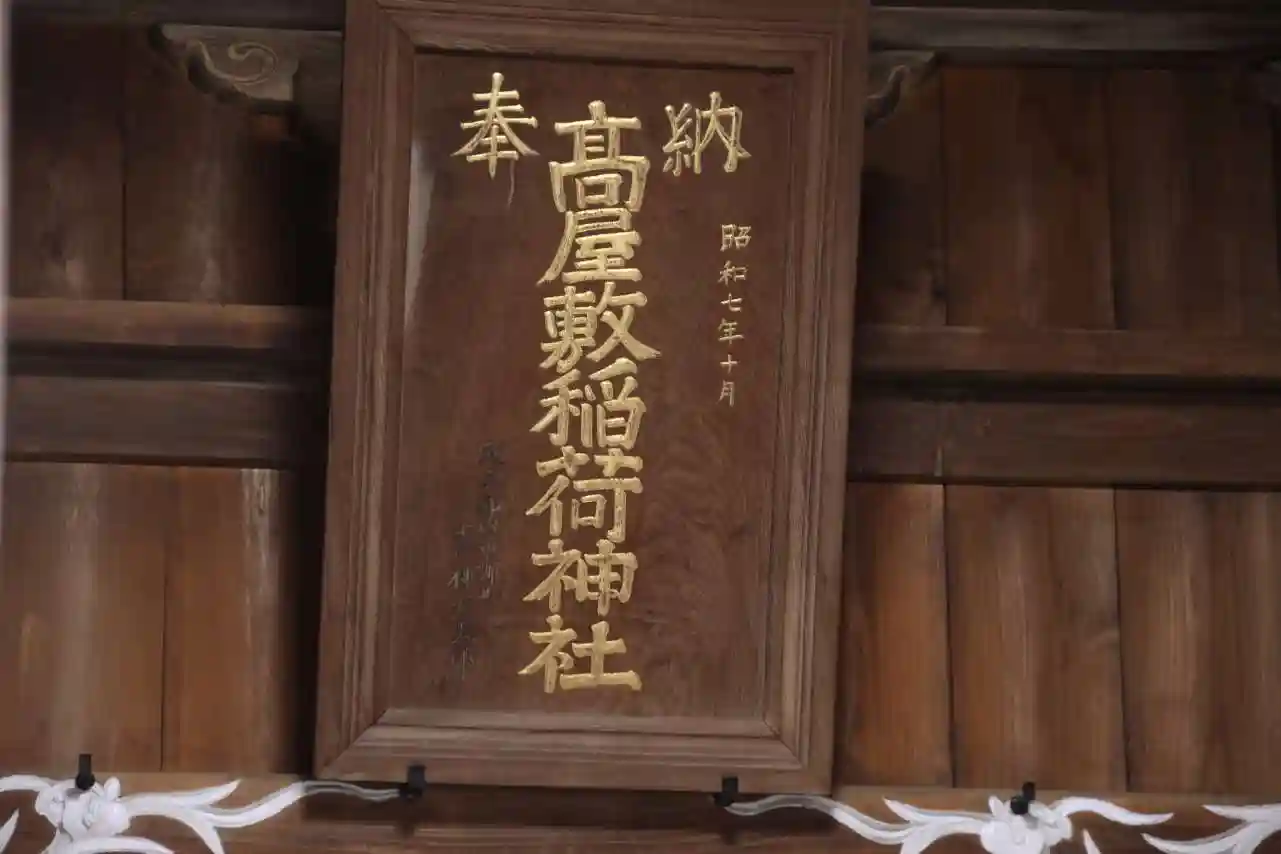 奉納
昭和七年十月
髙屋敷稲荷神社